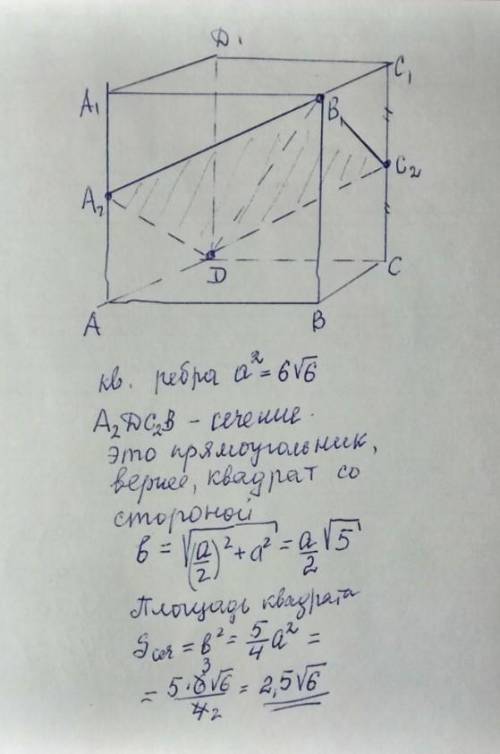 D₁
A₁
C₁
B₁
A₂
C₂
D
C
A
B
кв. ребра a² = 6√6
A₂DC₂B - сечение.
Это прямоугольник,
вернее, квадрат со
стороной
b = √((a/2)² + a²) = a/2 √5
Площадь квадрата
Sсеч = b² = 5/4 a² =
= 5·6̸³√6/4̸₂ = 2,5√6